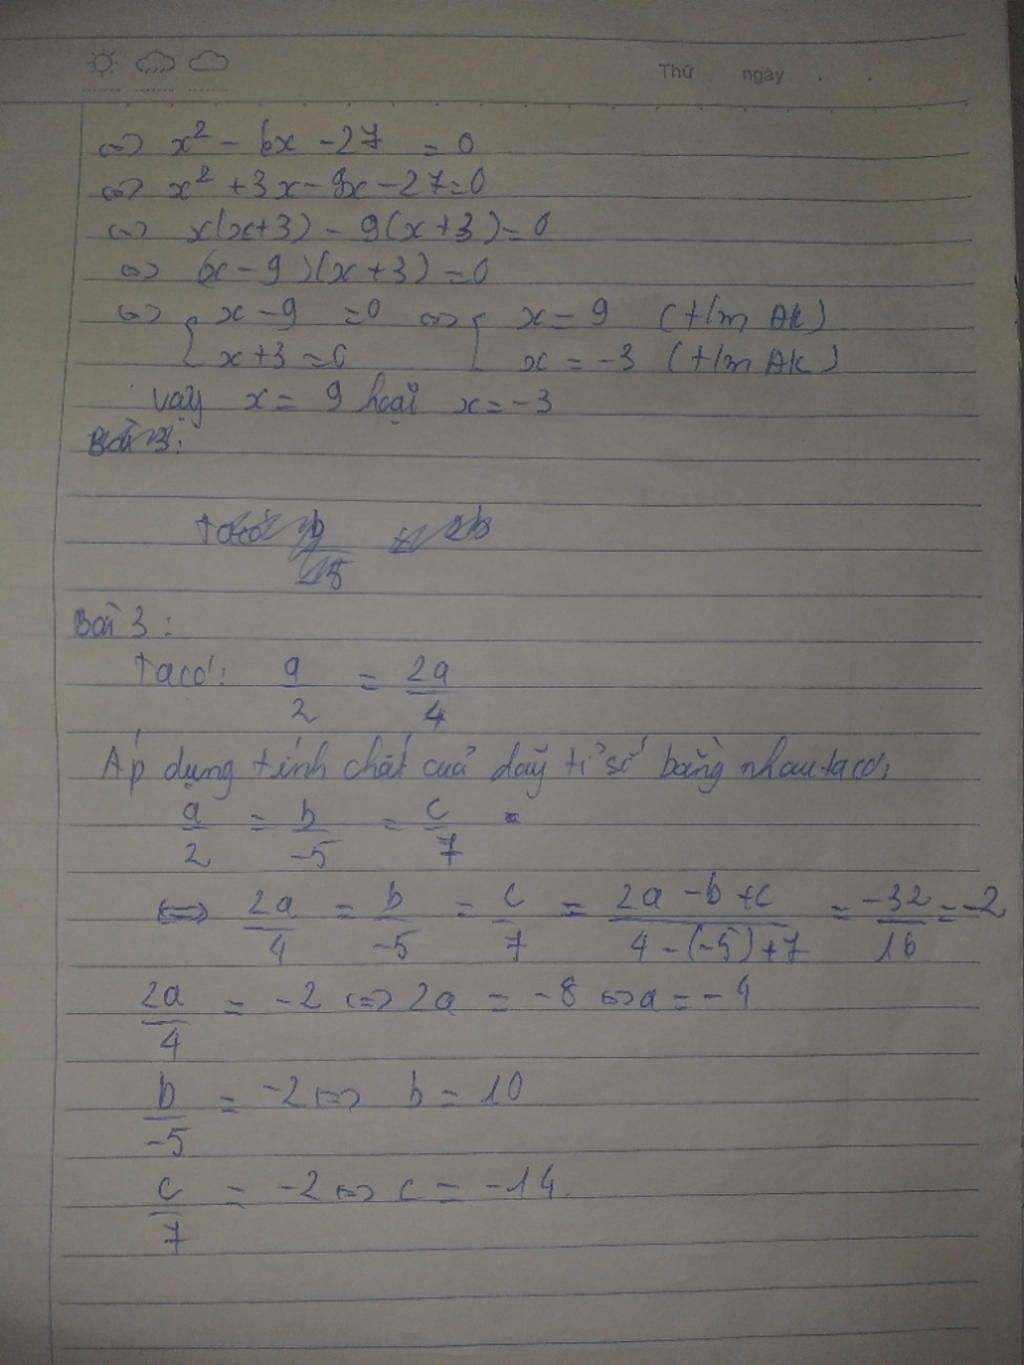 Thứ ngày . .
⇔ x² - 6x - 27 = 0
⇔ x² + 3x - 9x - 27 = 0
⇔ x(x+3) - 9(x+3) = 0
⇔ (x - 9)(x+3) = 0
⇔ { x - 9 = 0 ⇔ { x = 9 (t/m Đk)
x + 3 = 0 x = -3 (t/m Đk)
vậy x = 9 hoặc x = -3
Bài 3:
Ta có: a/2 = 2a/4
Áp dụng tính chất của dãy tỉ số bằng nhau ta có:
a/2 = b/-5 = c/7
⇔ 2a/4 = b/-5 = c/7 = (2a - b + c)/(4 - (-5) + 7) = -32/16 = -2
2a/4 = -2 ⇔ 2a = -8 ⇔ a = -4
b/-5 = -2 ⇔ b = 10
c/7 = -2 ⇔ c = -14.